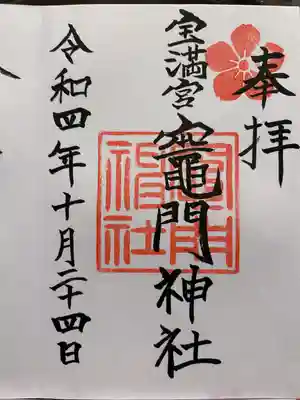 奉拝
宝満宮
竈門神社
令和四年十月二十四日